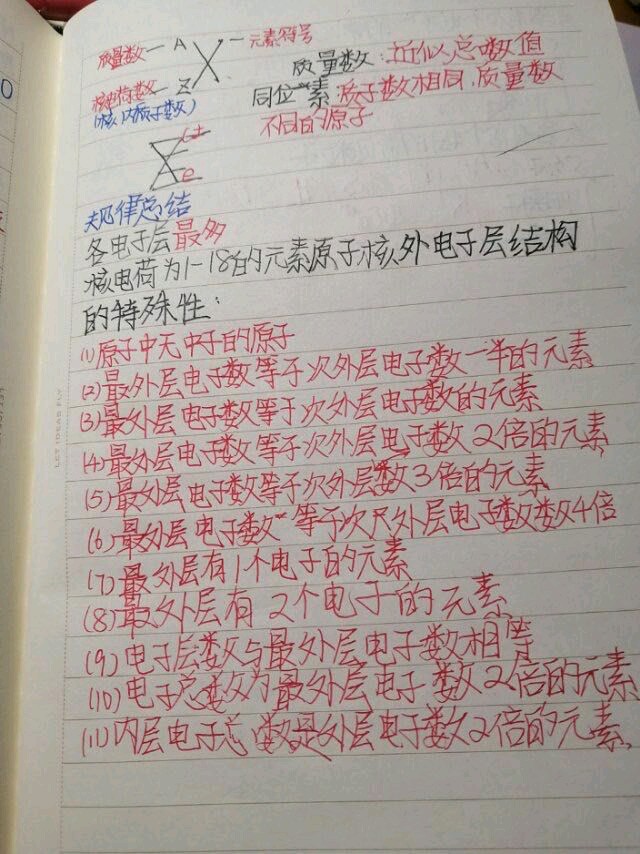 质量数 — A X — 元素符号
核电荷数 — Z
(核内质子数)
质量数:近似总数值
同位素:质子数相同,质量数
不同的原子
规律总结
各电子层最多
核电荷为1-18的元素原子核外电子层结构
的特殊性:
(1)原子中无中子的原子
(2)最外层电子数等于次外层电子数一半的元素
(3)最外层电子数等于次外层电子数的元素
(4)最外层电子数等于次外层电子数2倍的元素
(5)最外层电子数等于次外层数3倍的元素
(6)最外层电子数等于次尺外层电子数数4倍
(7)最外层有1个电子的元素
(8)最外层有2个电子的元素
(9)电子层数与最外层电子数相等
(10)电子总数为最外层电子数2倍的元素
(11)内层电子总数是外层电子数2倍的元素
LET IDEAS FLY